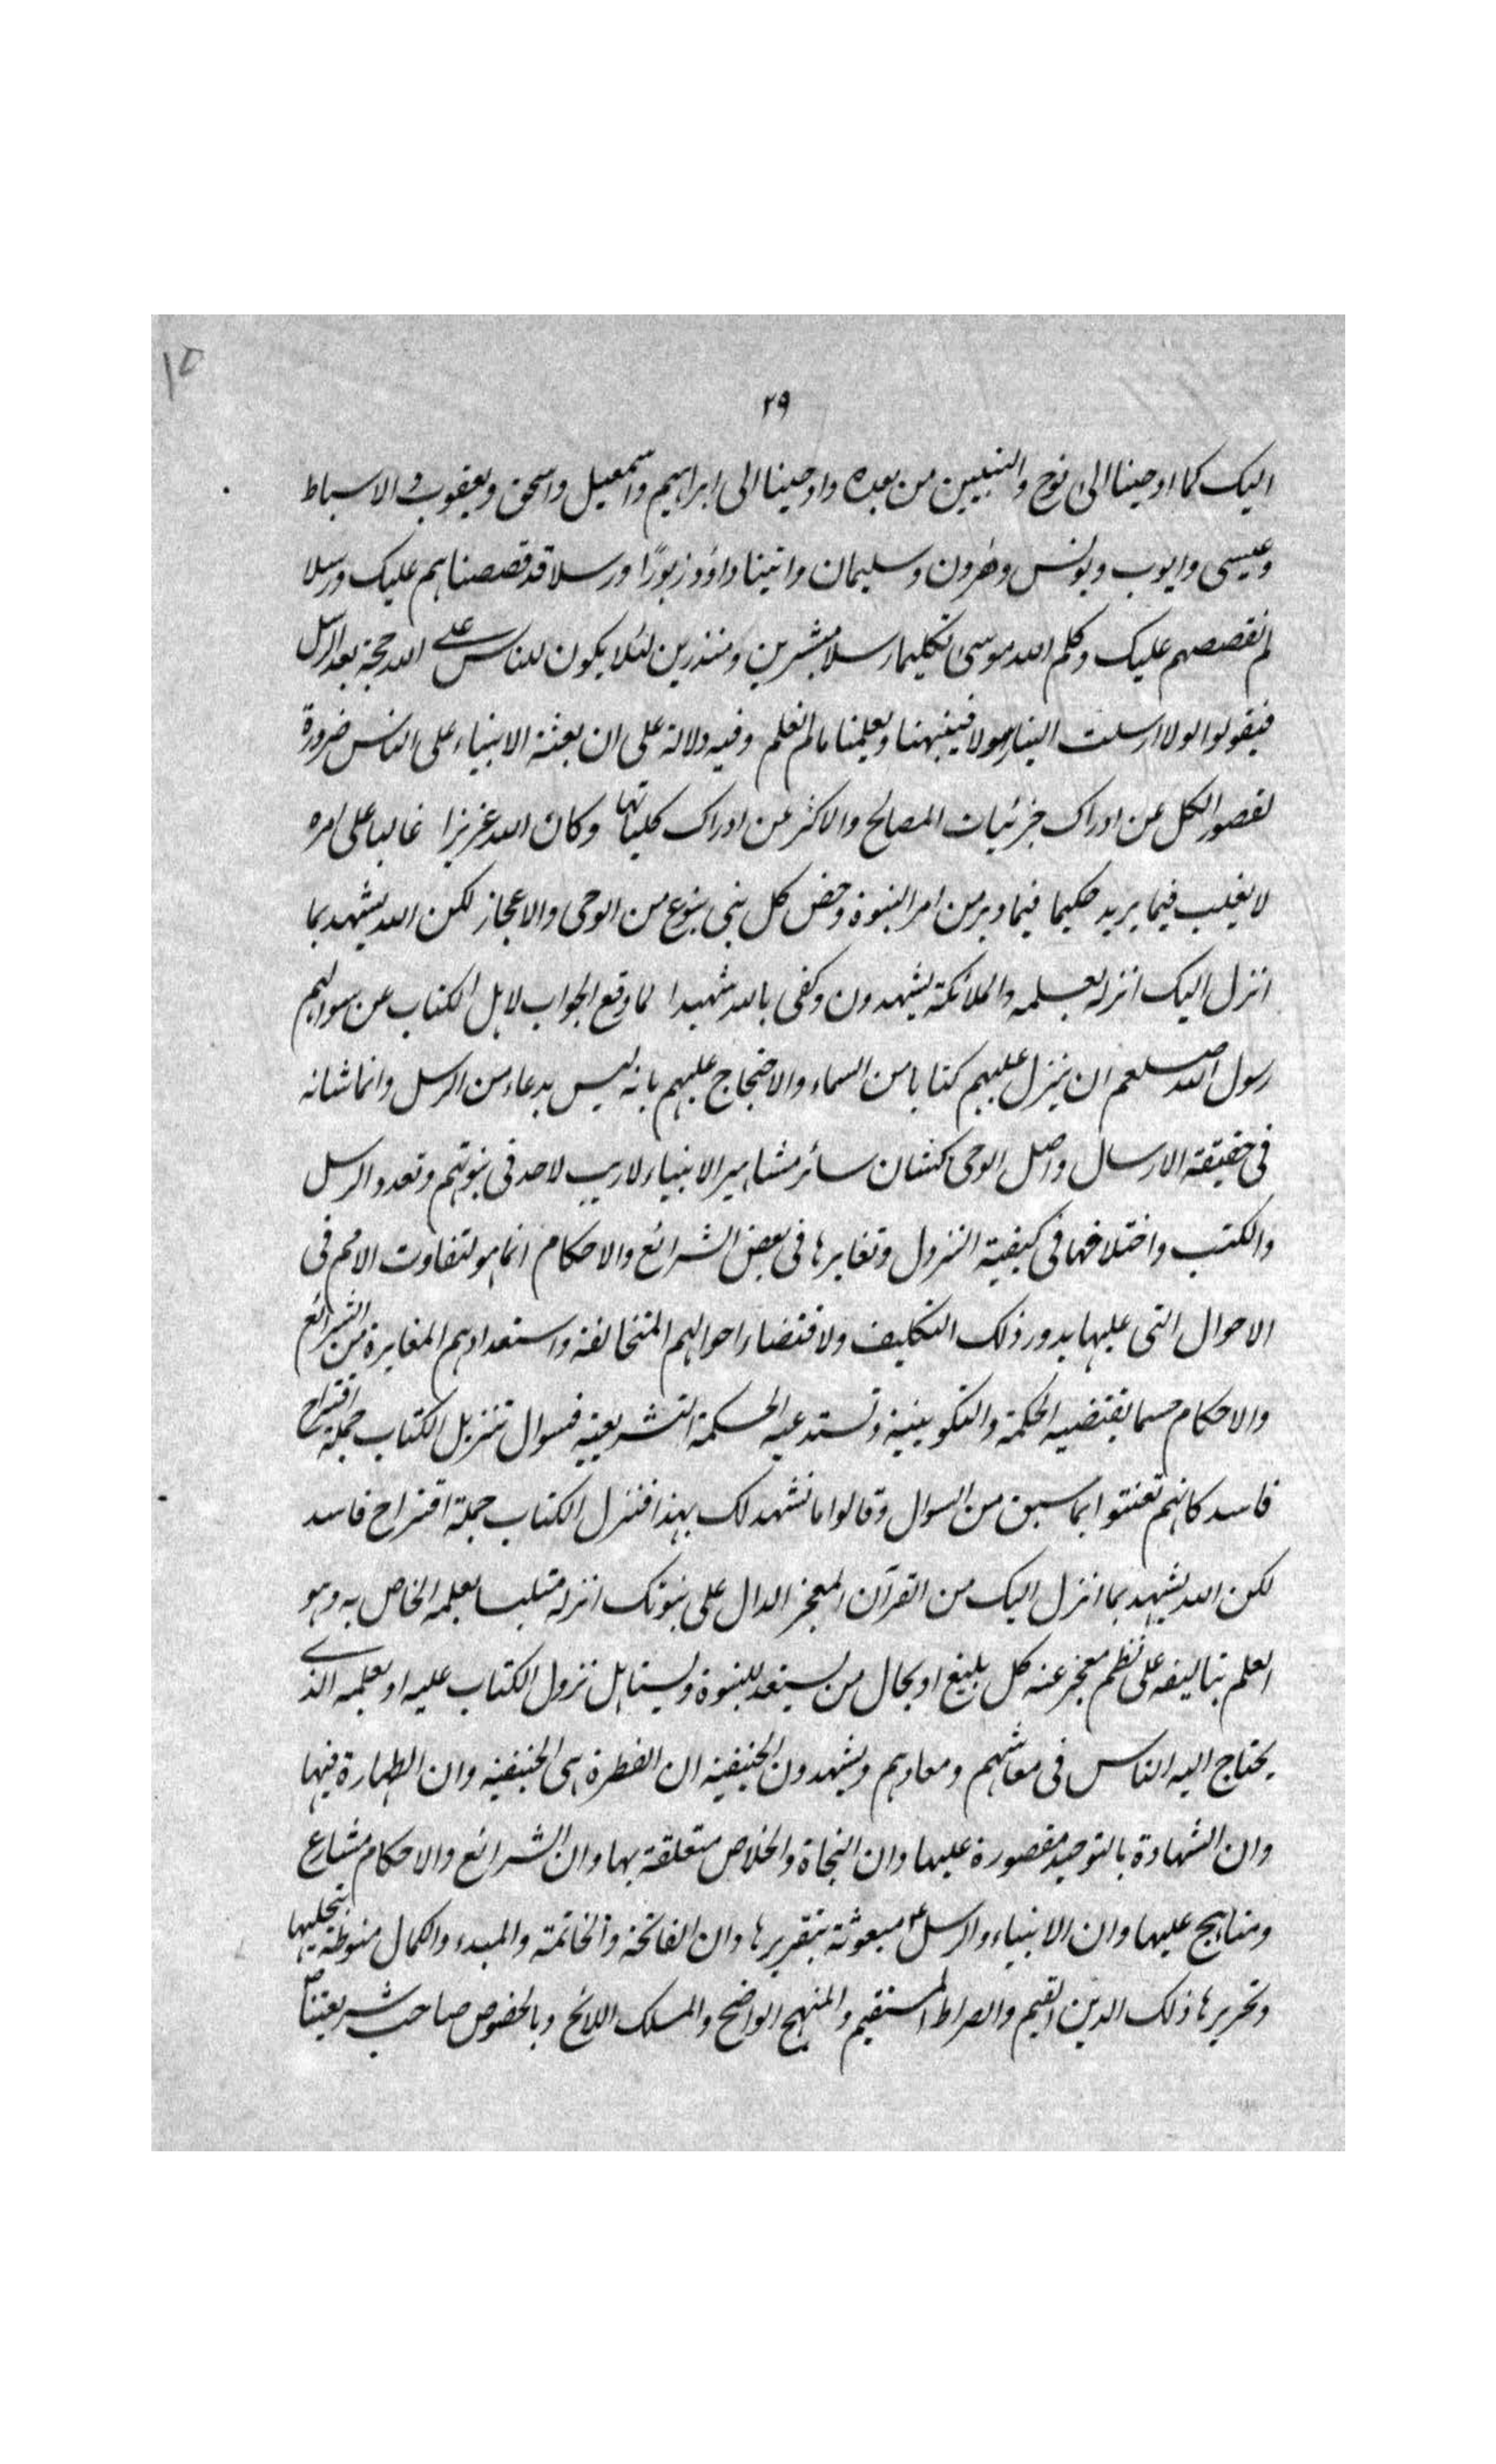 ١٥
٢٩
اليک کما اوحينا الى نوح والنبيين من بعده واوحينا الى ابراهيم واسمعيل واسحق ويعقوب والاسباط
وعيسى وايوب ويونس وهرون وسليمان واتينا داؤد زبورًا ورسلا قد قصصناهم عليک ورسلا
لم نقصصهم عليک وکلم الله موسى تکليما رسلا مبشرين ومنذرين لئلا يکون للناس على الله حجة بعد الرسل
فيقولوا لولا ارسلت الينا رسولا فينبهنا ويعلمنا ما لم نعلم وفيه دلالة على ان بعثة الانبياء على الناس ضرورة
لقصور الکل عن ادراک جزئيات المصالح والاکثر عن ادراک کلياتها وکان الله عزيزا غالبا على امره
لا يغلب فيما يريد حکيما فيما دبر من امر النبوة وخص کل نبى بنوع من الوحى والاعجاز لکن الله يشهد بما
انزل اليک انزله بعلمه والملائکة يشهدون وکفى بالله شهيدا لما وقع الجواب لاهل الکتاب عن سوالهم
رسول الله صلعم ان ينزل عليهم کتابا من السماء والاحتجاج عليهم بانه ليس بدعا من الرسل وانما شانه
فى حقيقة الارسال واصل الوحى کشان سائر مشاهير الانبياء لا ريب لاحد فى نبوتهم وتعدد الرسل
والکتب واختلافها فى کيفية النزول وتغايرها فى بعض الشرائع والاحکام انما هو لتفاوت الامم فى
الاحوال التى عليها يدور ذلک التکليف ولاقتضاء احوالهم المتخالفة واستعدادهم المغايرة من الشرائع
والاحکام حسبما يقتضيه الحکمة والتکوينية وتستدعيه الحکمة التشريعية فسوال تنزيل الکتاب جملة اقتراح
فاسد کانهم تعنتوا بما سبق من السوال وقالوا ما نشهد لک بهذا فنزل الکتاب جملة اقتراح فاسد
لکن الله يشهد بما انزل اليک من القرآن المعجز الدال على نبوتک انزله متلبسا بعلمه الخاص به وهو
العلم بتاليفه على نظم معجز عنه کل بليغ او بحال من يستعد للنبوة ويستاهل نزول الکتاب عليه او بعلمه الذى
يحتاج اليه الناس فى معاشهم ومعادهم ويشهدون الحنيفية ان الفطرة هى الحنيفية وان الطهارة فيها
وان الشهادة بالتوحيد مقصورة عليها وان النجاة والخلاص متعلقة بها وان الشرائع والاحکام مشارع
ومناهج عليها وان الانبياء والرسل مبعوثة بتقريرها وان الفاتحة والخاتمة والمبدء والکمال منوطة بتحليها
وتحريرها ذلک الدين القيم والصراط المستقيم والمنهج الواضح والمسلک اللائح وبالخصوص صاحب شريعتنا